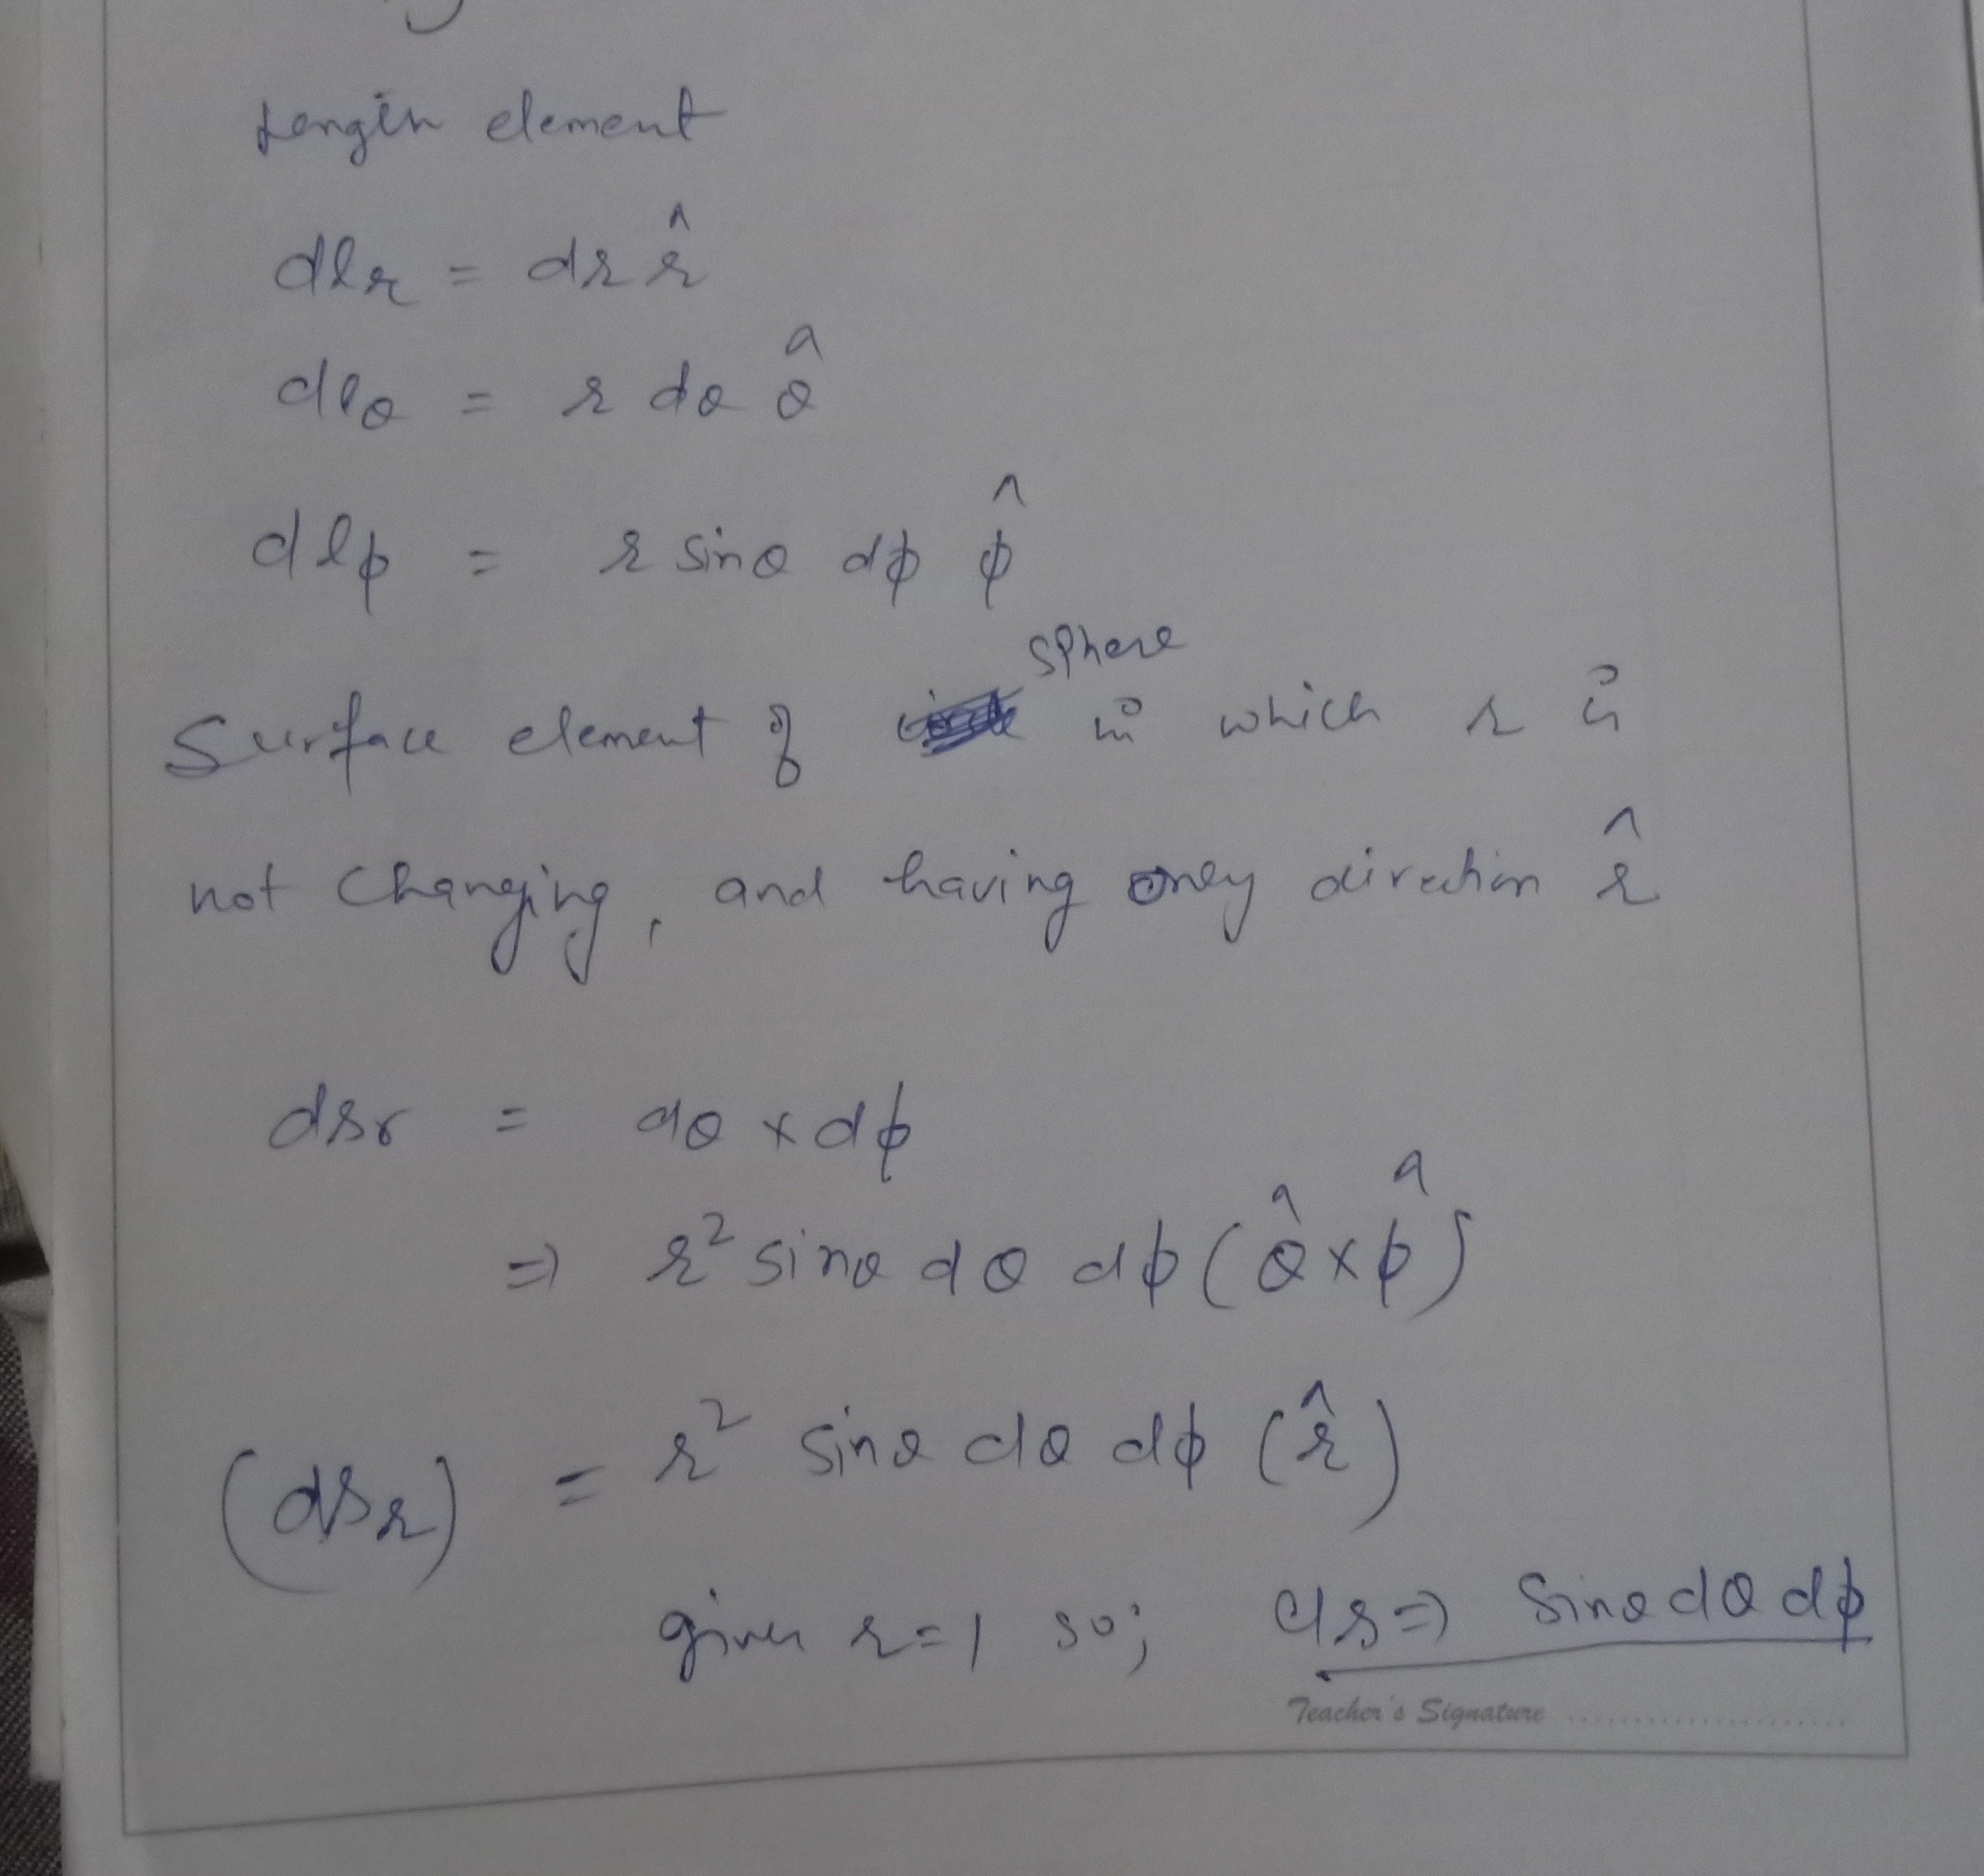 Length element
dl_r = dr r̂
dl_θ = r dθ θ̂
dl_ϕ = r sinθ dϕ ϕ̂
sphere
Surface element of in which r is
not changing, and having only direction r̂
ds_r = dθ × dϕ
⇒ r² sinθ dθ dϕ (θ̂ × ϕ̂)
(ds_r) = r² sinθ dθ dϕ (r̂)
given r=1 so; ds ⇒ sinθ dθ dϕ
Teacher's Signature ....................